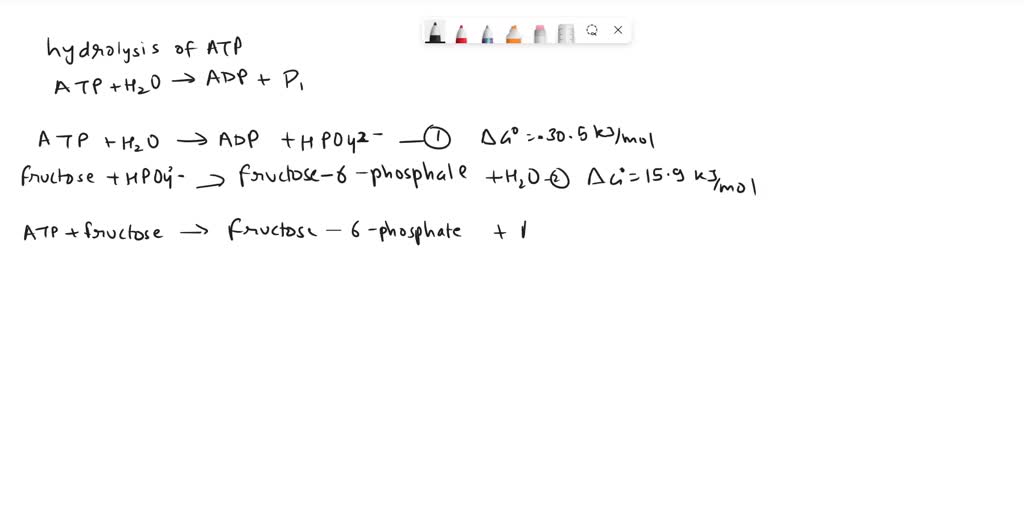 hydrolysis of ATP
ATP + H2O → ADP + Pi
ATP + H2O → ADP + HPO42- — ① ΔG° = -30.5 kJ/mol
fructose + HPO42- → fructose-6-phosphate + H2O -② ΔG° = 15.9 kJ/mol
ATP + fructose → fructose - 6 -phosphate +